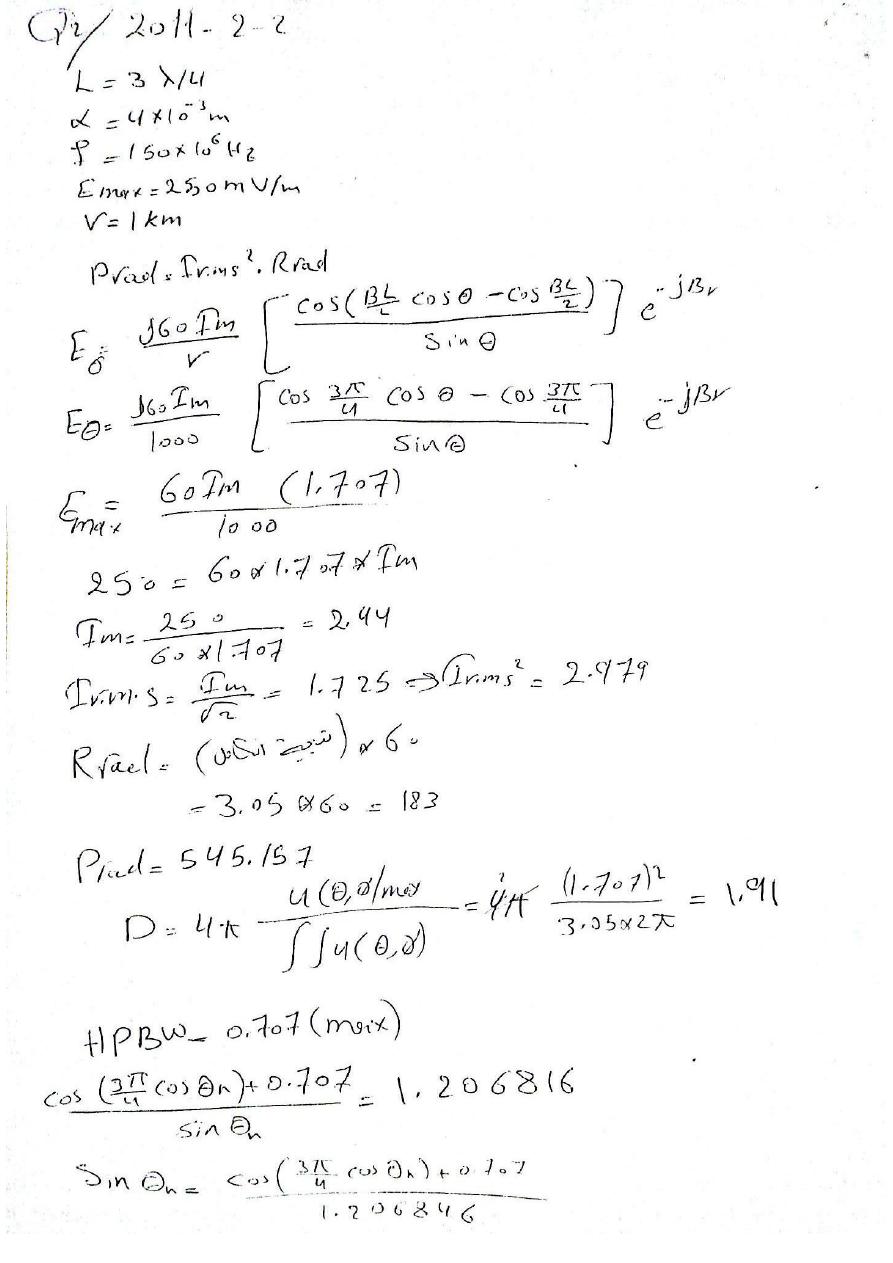 Q2/ 2011-2-2
L = 3 λ/4
α = 4×10⁻³ m
f = 150×10⁶ Hz
Emax = 250 mV/m
r = 1 km
Prad = Irms². Rrad
Eθ = j60 Im / r [ cos(BL/2 cosθ - cos BL/2) / sinθ ] e^-jBr
Eθ = j60 Im / 1000 [ cos 3π/4 cosθ - cos 3π/4 / sinθ ] e^-jBr
Emax = 60 Im (1.707) / 1000
250 = 60×1.707×Im
Im = 250 / 60×1.707 = 2.44
Ir.m.s = Im/√2 = 1.725 ⇒ Ir.ms² = 2.979
Rrad = (نتيجة التكامل) × 60
= 3.05 × 60 = 183
Prad = 545.157
D = 4π u(θ,ø)max / ∫∫u(θ,ø) = 4π (1.707)² / 3.05×2π = 1.91
HPBW = 0.707 (max)
cos (3π/4 cos θh) + 0.707 / sin θh = 1.206816
Sin θh = cos( 3π/4 cos θh) + 0.707 / 1.206846